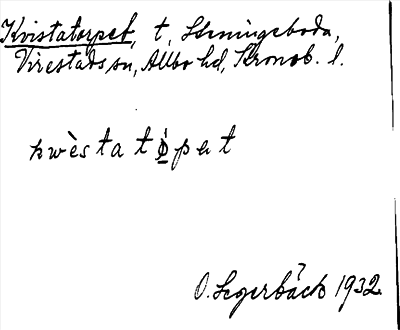 Kvistatorpet, t, Steningeboda,
Virestads sn, Allbo hd, Kronob. l.
kwèstatɷ̀pet
O. Segerbäck 1932.